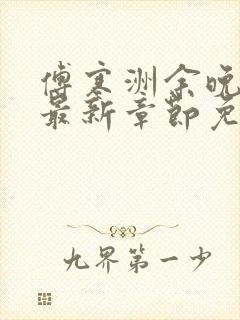 傅寒洲余晚
最新章节免
九界第一少